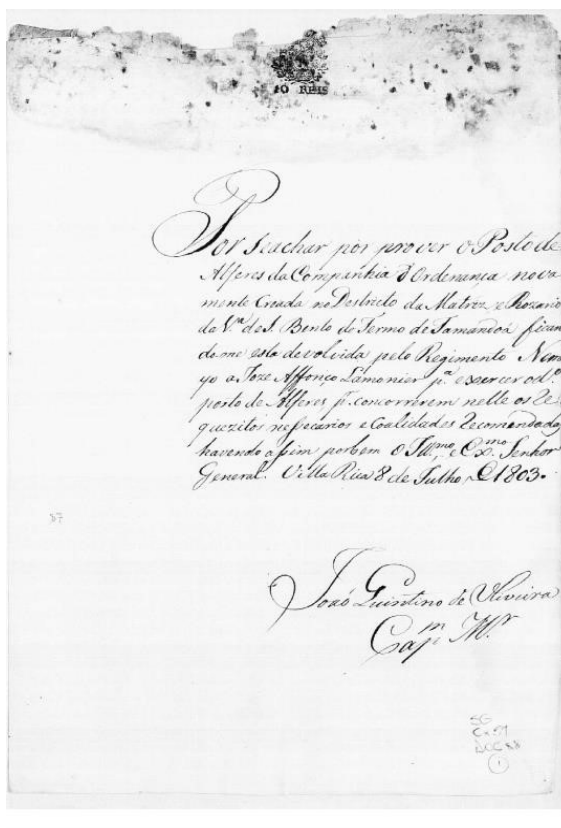 10 REIS
Por Seachar por prover o Posto de
Alferes da Companhia d'Ordenança nova
mente Creada no Destricto da Matriz e Rozario
da V.ª de S. Bento do Termo de Tamandoá fican
do me esta devolvida pelo Regimento Nome
yo a Joze Affonço Lamonier p.ª exercer o d.º
posto de Alferes p.r concorrerem nelle os Re
quezitos nessecarios e Coalidades Recomendadas
havendo assim por bem o Ill.mo e Ex.mo Senhor
General. Villa Rica 8 de Julho de 1803.
João Quintino de Oliveira
Cap.m M.r
SG
Cx. 59
DOC 88
1